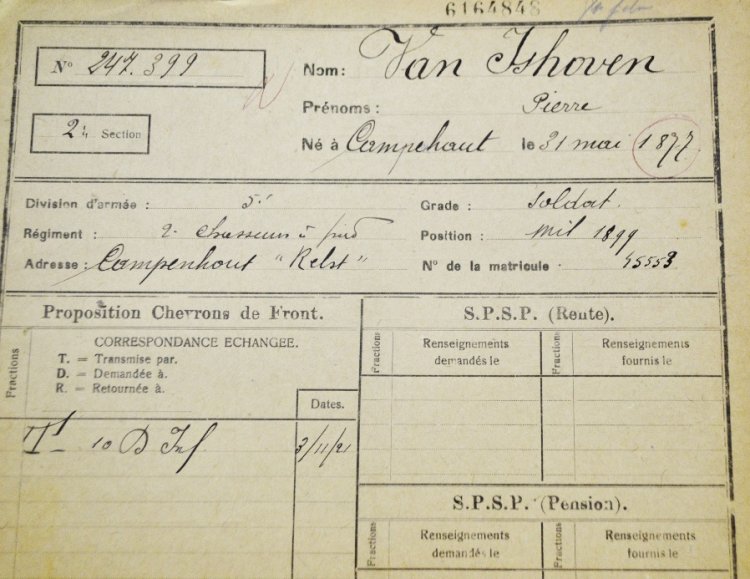 6164848
N° 247.399
Nom: Van Ishoven
Prénoms: Pierre
2è Section
Né à Campehout le 31 mai 1877
Division d'armée : 5è
Grade : soldat.
Régiment : 2e chasseurs à pied
Position : mil 1899
Adresse: Campenhout "Relst"
N° de la matricule 45553
Proposition Chevrons de Front.
S.P.S.P. (Rente).
Fractions
CORRESPONDANCE ECHANGEE.
T. = Transmise par.
D. = Demandée à.
R. = Retournée à.
Dates.
Fractions
Renseignements demandés le
Fractions
Renseignements fournis le
10 D Inf 3/11/21
S.P.S.P. (Pension).
Fractions
Renseignements demandés le
Fractions
Renseignements fournis le